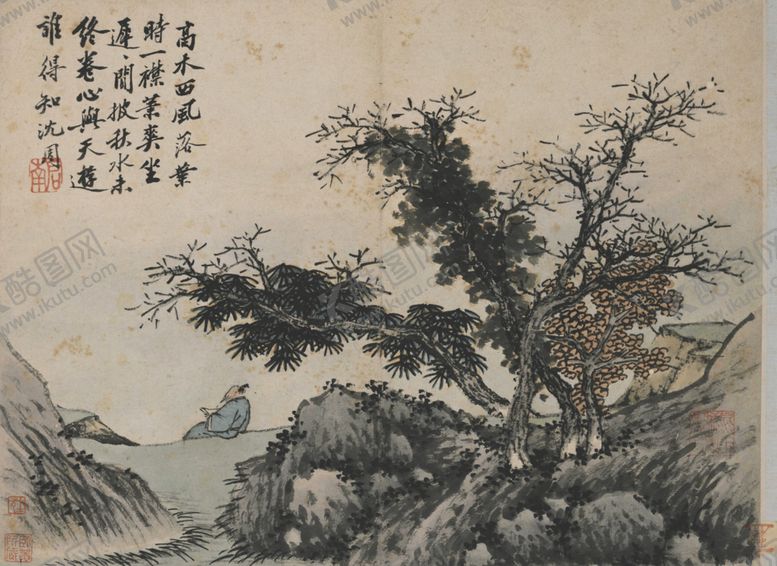 高木西風落葉
時一襟蕭爽坐
遲〻閒披秋水未
終卷心與天遊
誰得知沈周
啟南
酷图网
www.ikutu.com